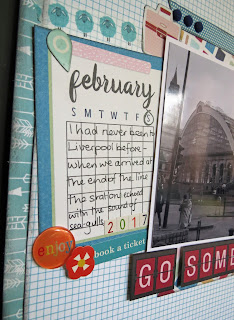 february
S M T W T F S
I had never been to
Liverpool before -
when we arrived at
the end of the line
the station echoed
with the sound of
sea-gulls 2017
enjoy
book a ticket
GO SOME